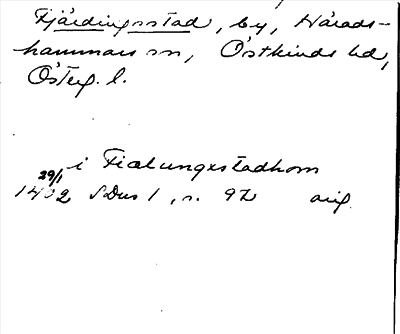 Fjärdingsstad, by, Härads-
hammars sn, Östkinds hd,
Österg. l.
i Fiælungxstadhom
29/1
1402 SDns 1, s. 92 orig.